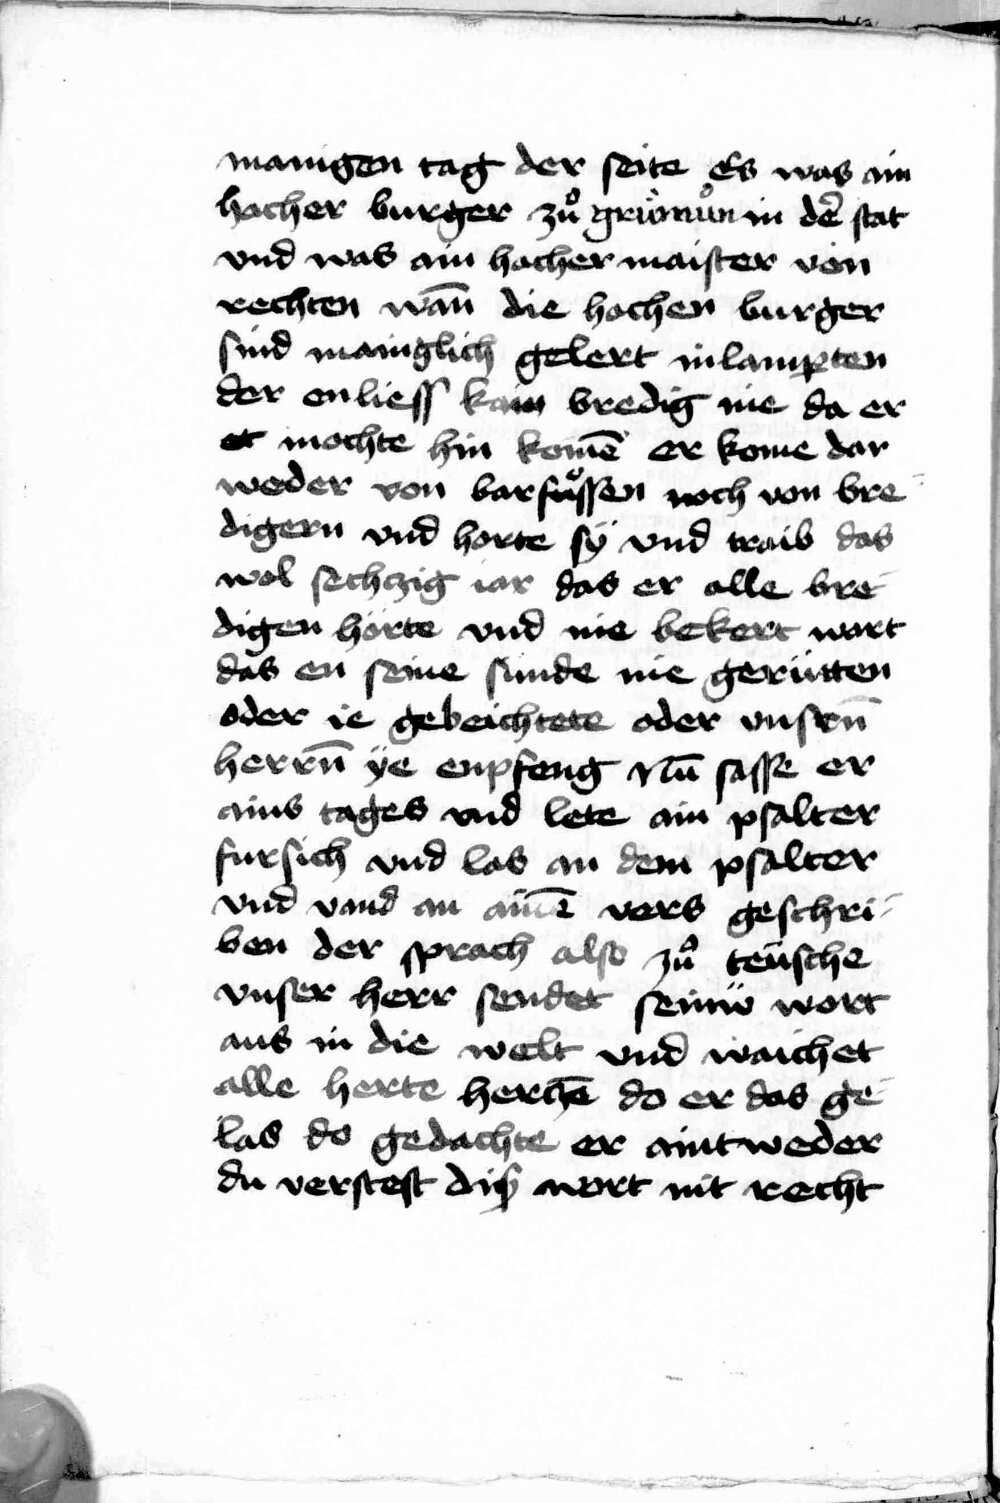 manigen tag der seite Es was ain
hocher burger zuͦ gruͦnuͦn in de᷑ stat
vnd was ain hocher maister von
rechten wan̄ die hochen burger
sind mainglich gelert in lampten
der enliess kain bredig nie da er
et mochte hin komē er kome dar
weder von barfuͦssen noch von bre
digern vnd horte sÿ vnd traib das
wol sechtzig iar das er alle bre
digen hörte vnd nie bekert wart
das en seine sünde nie gerütten
oder ie gebeichtete oder vnsrn̄
herrn̄ ÿe enpfeng Nū sasse er
ains tages vnd lete ain psalter
fursich vnd las an dem psalter
vnd vand an ainē vers geschri
ben der sprach also zuͦ teüsche
vnser herr sendet seinü wort
aus in die welt vnd waichet
alle herte hertzē do er das ge
las do gedachte er aintweder
du verstest dis wort nit recht